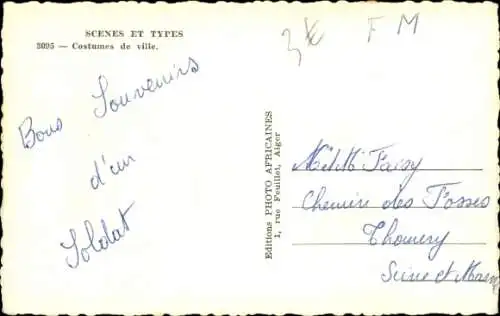 SCENES ET TYPES
3095 — Costumes de ville.
3€ F M
Bons Souvenirs
d'un
Soldat
Editions PHOTO AFRICAINES
1, rue Feuillet, Alger
Faisy
Chemin des Fosses
Thomery
Seine et Marne